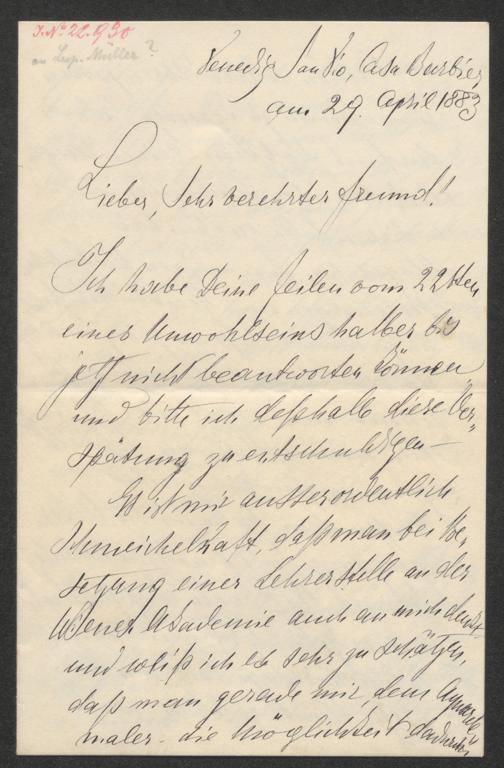 J. No 22.930
an Leop. Müller?
Venedig San Vio, Casa Barbier
am 29. April 1883
Lieber, sehr verehrter Freund!
Ich habe Deine Zeilen vom 22ten
eines Unwohlseins halber bis
jetzt nicht beantworten können
und bitte ich deßhalb diese Ver„
spätung zu entschuldigen –
Es ist mir ausserordentlich
schmeichelhaft, daß man bei Be„
setzung einer Lehrerstelle an der
Wiener Akademie auch an mich denkt
und weiß ich es sehr zu schätzen,
daß man gerade mir, dem Aquarell„
maler – die Möglichkeit dadurch